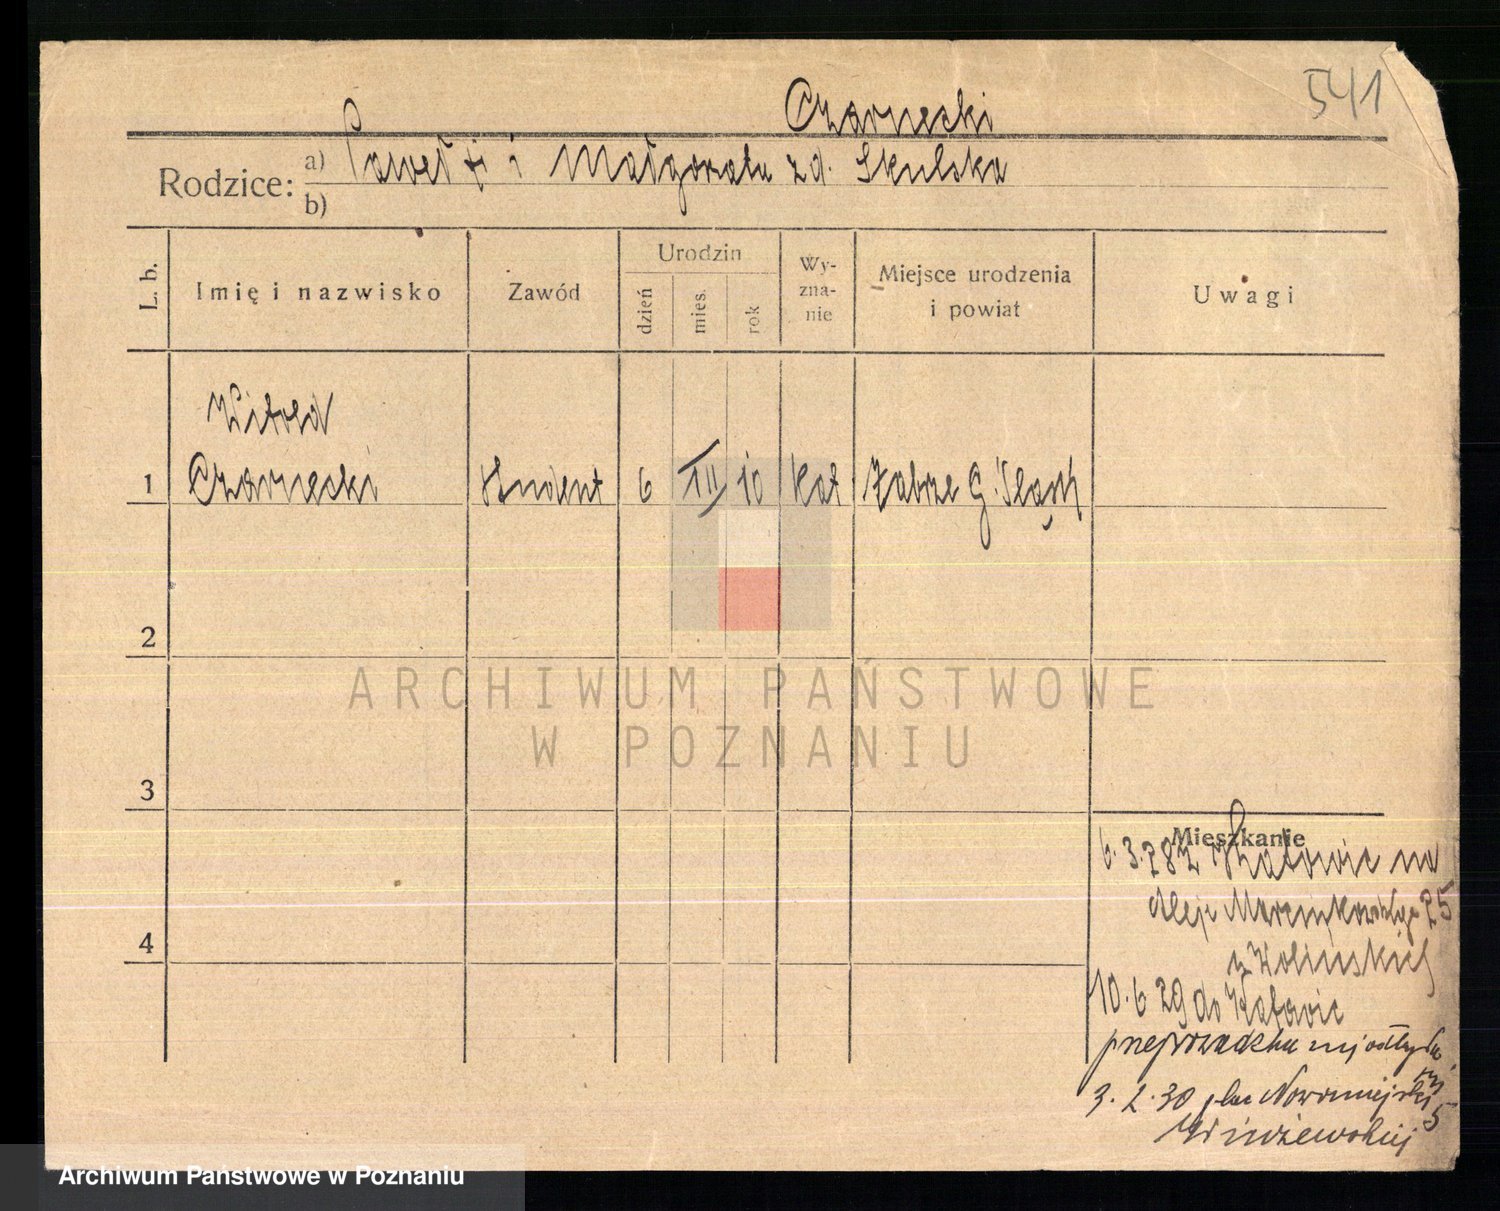 541
Czarnecki
Rodzice: a) Paweł † i Małgorzata zd. Skulska
b)
L. b.
Imię i nazwisko
Zawód
Urodzin
dzień
mies.
rok
Wy-
zna-
nie
Miejsce urodzenia
i powiat
Uwagi
Witold
1 Czarnecki student 6 III 10 kat Zabrze G. Śląsk
2
3
4
Mieszkanie
6.3.28 z Katowic na
Aleje Marcinkowskiego 25
u Wolińskich
10.6 29 do Katowic
przeprowadzka nie odbyła się
3.2.30 plac Nowomiejski 5
ARCHIWUM PAŃSTWOWE
W POZNANIU
Archiwum Państwowe w Poznaniu